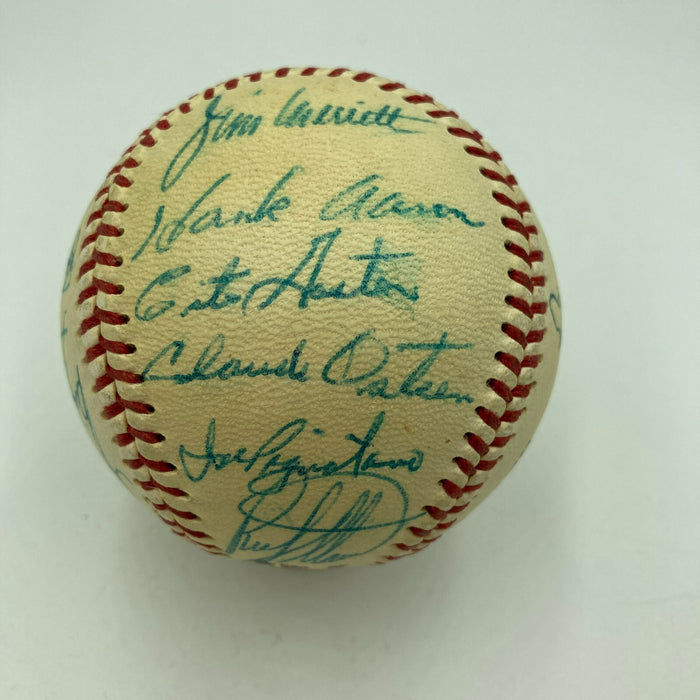 Jim Merritt
Hank Aaron
Cito Gaston
Claude Osteen
Joe Pignatano